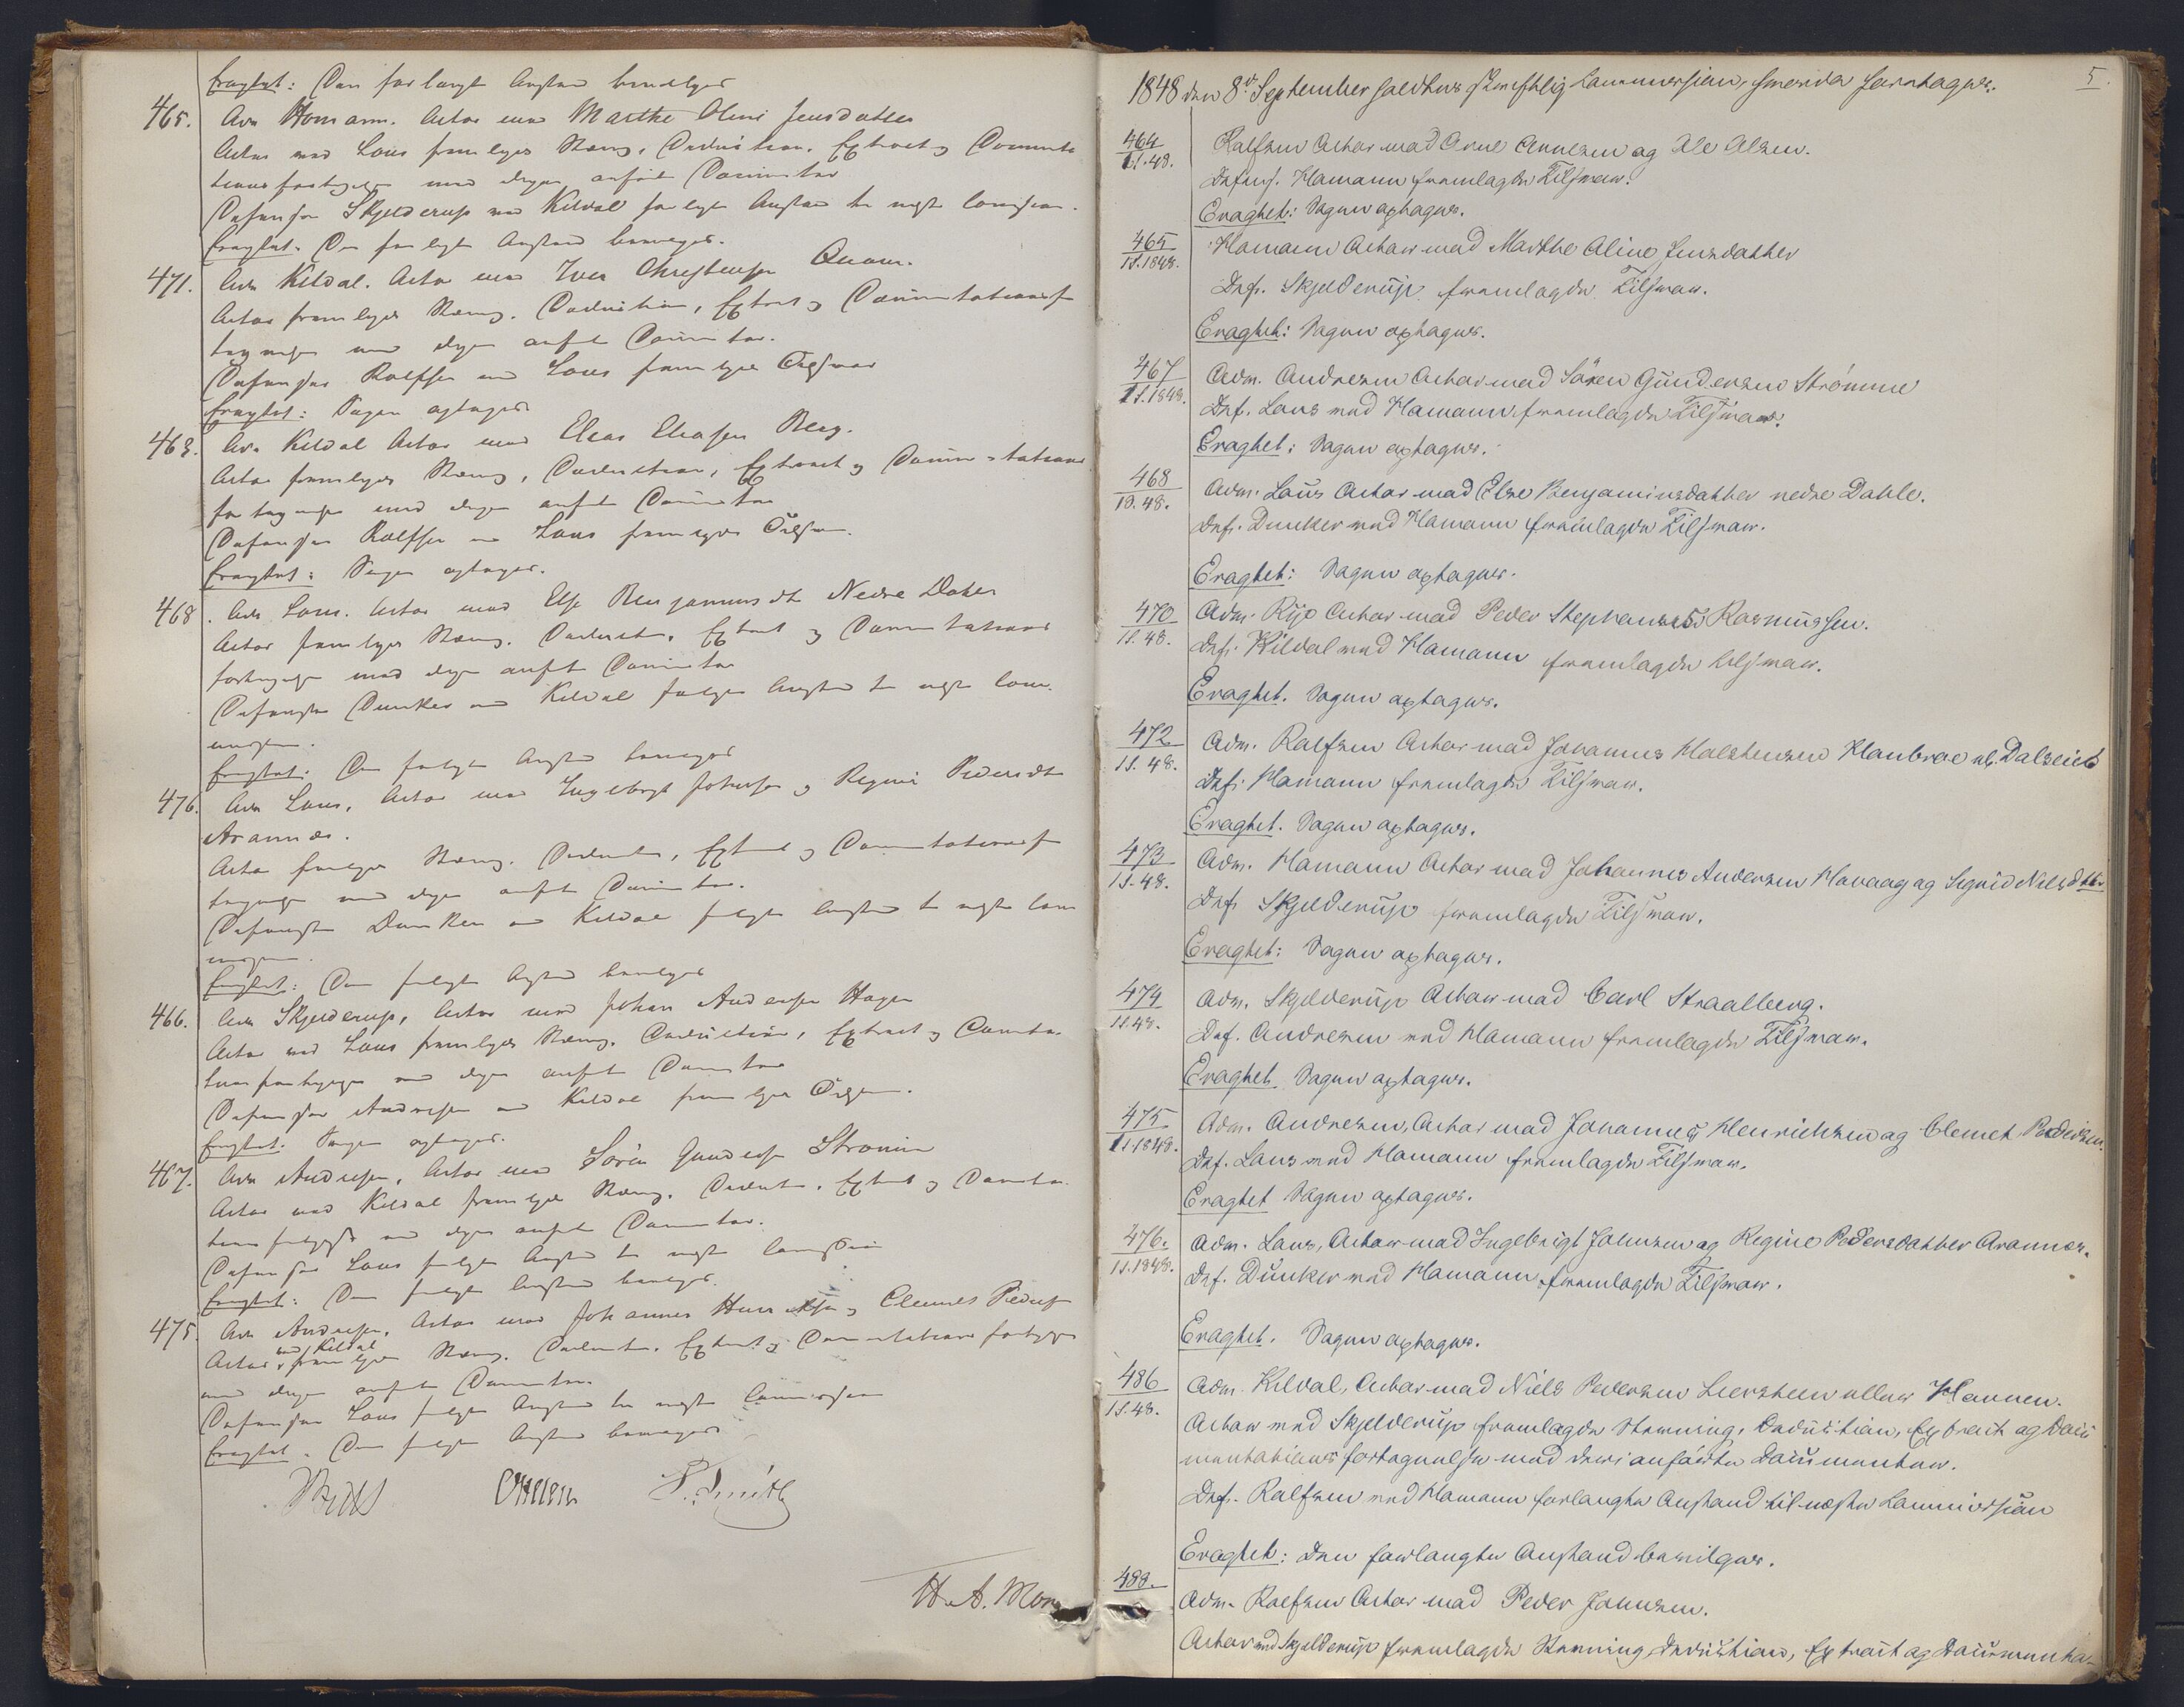 Eragtet: Den forlangte Anstand bevilges
465. Adv Homann. Actor mod Marthe Oline Jensdatter
Actor med Lous fremlagde Stævng, Deduction, Extract og Documenta
tionsfortegnelse med deri anførte Documenter
Defensor Skjelderup med Kildal forlangte Anstand til næste Commission.
Eragtet. Den forlangte Anstand bevilges.
471. Adv Kildal. Actor mod Iver Christensen Quam.
Actor fremlagde Stævng. Deduction, Extract og Documentationsfor
tegnelse med deri anførte Documenter.
Defensor Rolfsen med Lous fremlagde Tilsvar
Eragtet: Sagen optages
463. Adv Kildal Actor mod Elias Eliasen Berg.
Actor fremlagde Stævng, Deduction, Extract og Documentations
fortegnelse med deri anførte Documenter
Defensor Rolfsen med Lous fremlagde Tilsvar.
Eragtet: Sagen optages.
468. Adv Lous. Actor mod Else Benjaminsdtr Nedre Dahle
Actor fremlagde Stævng. Deduction, Extract og Documentations
fortegnelse med deri anførte Documenter
Defensor Dunker med Kildal forlangte Anstand til næste Com
mission.
Eragtet: Den forlangte Anstand bevilges
476. Adv Lous, Actor mod Ingebrigt Johnsen og Regine Pedersdtr
Aramnæs.
Actor fremlagde Stævng. Deduction, Extract og Documentationsfor
tegnelse med deri anførte Documenter.
Defensor Dunker med Kildal forlangte Anstand til næste Com
mission.
Eragtet: Den forlangte Anstand bevilges
466. Adv Skjelderup, Actor mod Johan Andersen Hagen
Actor med Lous fremlagde Stævng. Deduction, Extract og Documenta
tionsfortegnelse med deri anførte Documenter
Defensor Andresen med Kildal fremlagde Tilsvar.
Eragtet: Sagen optages.
467. Adv Andresen, Actor mod Sören Gundersen Strömme
Actor med Kildal fremlagde Stævng. Deduction, Extract og Documenta
tionsfortegnelse med deri anførte Documenter.
Defensor Lous forlangte Anstand til næste Commission
Eragtet: Den forlangte Anstand bevilges.
475. Adv Andresen, Actor mod Johannes Henriksen og Clemet Pedersen
med Kildal
Actor fremlagde Stævng. Deduction, Extract og Documentationsfortegnelse
med deri anførte Documenter.
Defensor Lous forlangte Anstand til næste Commission
Eragtet. Den forlangte Anstand bevilges
P. Smith
H. A. Mor
5.
1848 den 8de September holdtes skriftlig Commission, hvorida foretages:
464
11.48.
Rolfsen Actor mod Arne Arnesen og Ole Olsen.
Defens. Homann fremlagde Tilsvar.
Eragtet: Sagen optages.
465
11.1848.
Homann Actor mod Marthe Oline Jensdatter
Def. Skjelderup fremlagde Tilsvar.
Eragtet: Sagen optages.
467
11.1848.
Adv. Andresen Actor mod Sören Gundersen Strömme
Def. Lous med Homann fremlagde Tilsvar.
Eragtet: Sagen optages.
468
10.48.
Adv. Lous Actor mod Else Benjaminsdatter nedre Dahle.
Def. Dunker med Homann fremlagde Tilsvar.
Eragtet: Sagen optages.
470
11.48.
Adv. Rye Actor mod Peder Stephanus Rasmussen.
Def. Kildal med Homann fremlagde Tilsvar.
Eragtet. Sagen optages.
472
11.48.
Adv. Rolfsen Actor mod Johannes Halstensen Haubroe el. Dalseie
Def. Homann fremlagde Tilsvar.
Eragtet. Sagen optages.
473
11.48.
Adv. Homann Actor mod Johannes Andersen Havaag og Sigrid Nielsdtter
Def. Skjelderup fremlagde Tilsvar.
Eragtet: Sagen optages.
474
11.48.
Adv. Skjelderup Actor mod Carl Straalberg.
Def. Andresen med Homann fremlagde Tilsvar.
Eragtet Sagen optages.
475
11.1848.
Adv. Andresen, Actor mod Johannes Henrichsen og Clemet Pedersen.
Def. Lous med Homann fremlagde Tilsvar.
Eragtet Sagen optages.
476.
11.1848.
Adv. Lous, Actor mod Ingebrigt Johnsen og Regine Pedersdatter Aramnæs.
Def. Dunker med Homann fremlagde Tilsvar.
Eragtet. Sagen optages.
486
11.48.
Adv. Kildal, Actor mod Niels Pedersen Leersteen eller Haunen.
Actor med Skjelderup fremlagde Stævning, Deduction, Extract og Docu
mentations fortegnelse med deri anførte Documenter.
Def. Rolfsen med Homann forlangte Anstand til næste Commission
Eragtet: Den forlangte Anstand bevilges.
488.
Adv. Rolfsen Actor mod Peder Johnsen.
Actor med Skjelderup fremlagde Stævning, Deduction, Extract og Documenta-